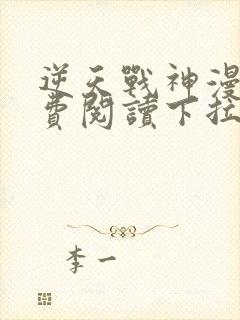 逆天戰神漫
費閱讀下拉
李一